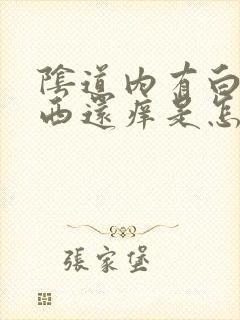 陰道內有白
西還痒是怎
張家堡